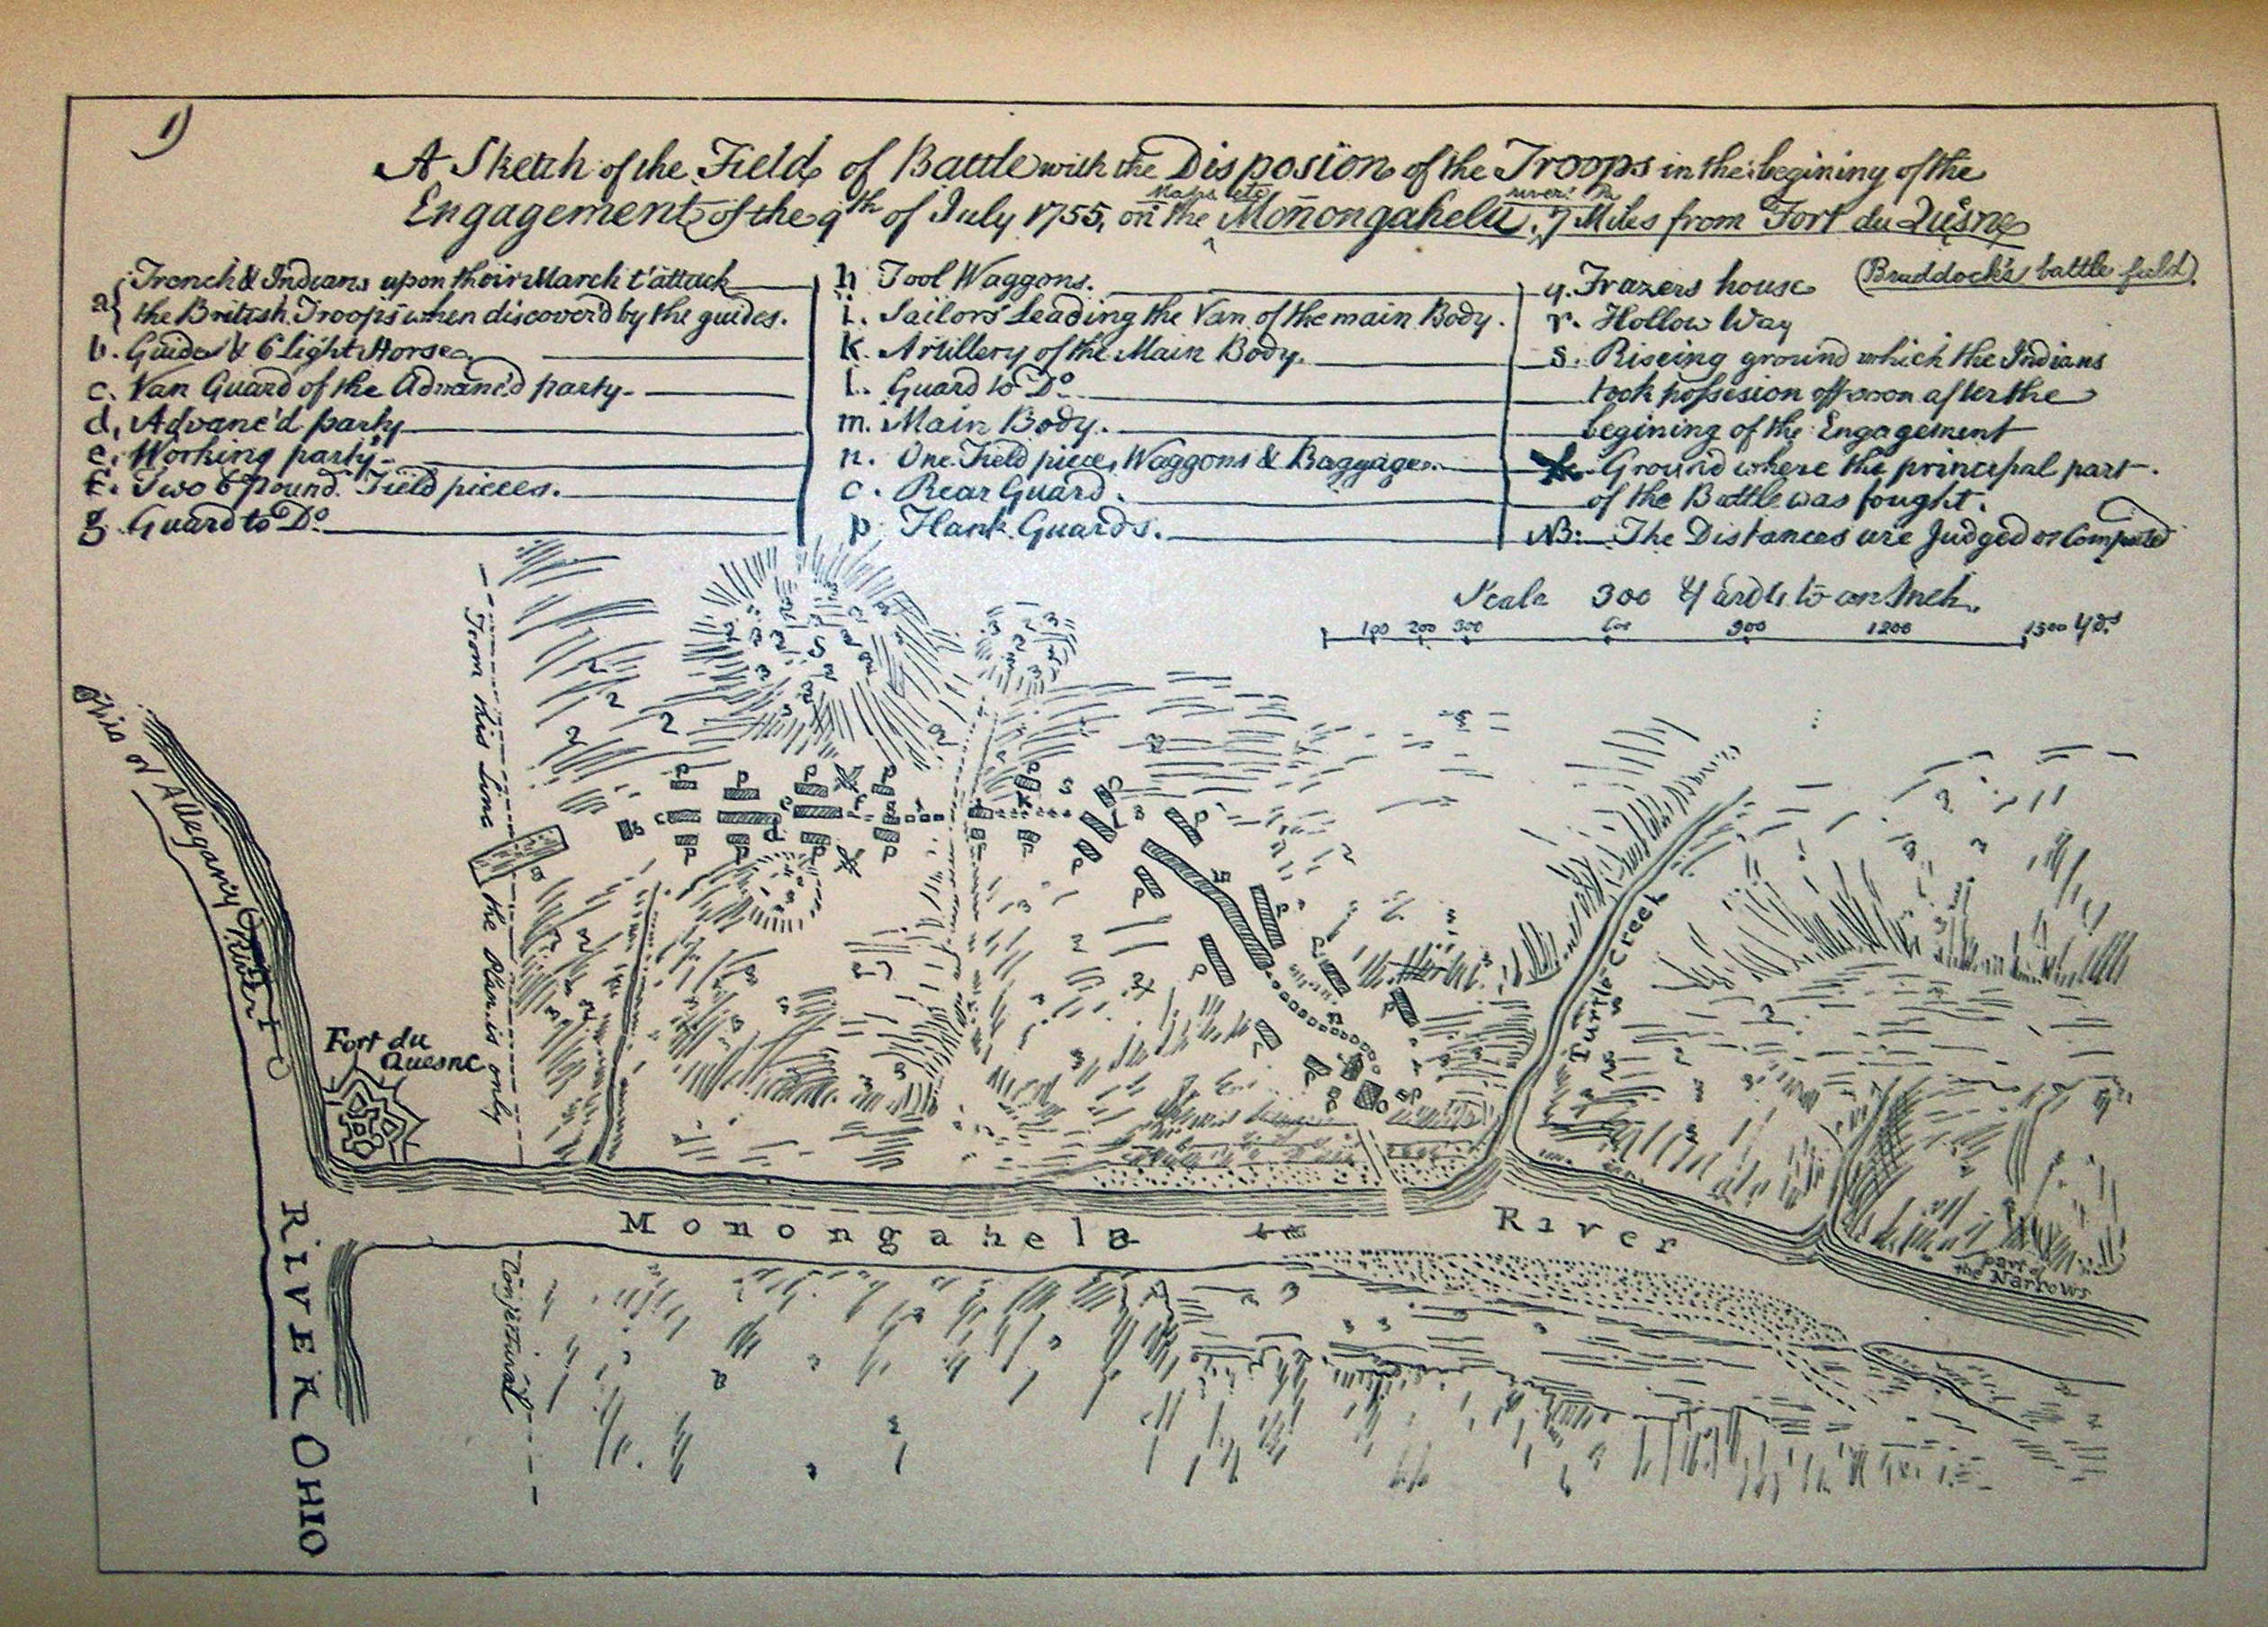 1)
A Sketch of the Field of Battle with the Disposion of the Troops in the begining of the
Engagement of the 9th of July 1755, on the Monongahela, 7 Miles from Fort du Quesne
(Braddock's battle field).
a} French & Indians upon their March t'attack
the British Troops when discover'd by the guides.
b. Guides & 6 light Horse
c. Van Guard of the Advanc'd party
d. Advanc'd party
e. Working party
f. Two 6 pound. Field pieces.
g. Guard to Do
h. Tool Waggons.
i. Sailors Leading the Van of the main Body.
k. Artillery of the Main Body.
l. Guard to Do
m. Main Body.
n. One Field piece, Waggons & Baggage.
o. Rear Guard.
p. Flank Guards.
q. Frazers house
r. Hollow Way
s. Riseing ground which the Indians
took possesion off soon after the
begining of the Engagement
Ground where the principal part
of the Battle was fought.
NB: The Distances are Judged or Computed
Scale 300 Yards to an Inch.
100 200 300 600 900 1200 1500 Yds
Ohio or Allegany River
From this Line the Plan is only
Conjectural
Fort du
Quesne
Turtle Creek
Monongahela River
part of
the Narrows
RIVER OHIO